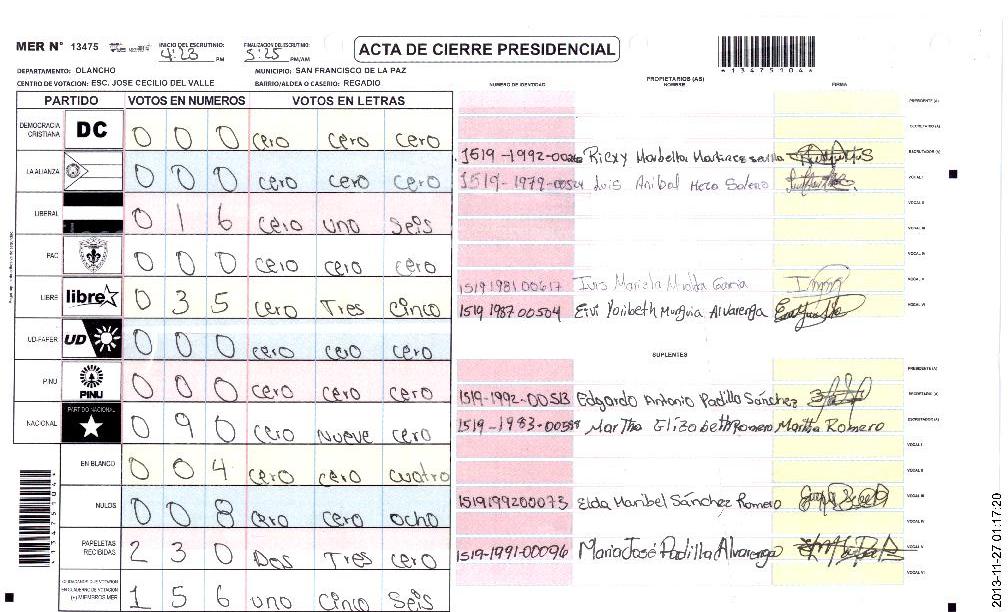 MER N° 13475
INICIO DEL ESCRUTINIO: 4:23 PM
FINALIZACION DEL ESCRUTINIO: 5:25 PM/AM
ACTA DE CIERRE PRESIDENCIAL
*13475104*
DEPARTAMENTO: OLANCHO
MUNICIPIO: SAN FRANCISCO DE LA PAZ
CENTRO DE VOTACION: ESC. JOSE CECILIO DEL VALLE
BARRIO/ALDEA O CASERIO: REGADIO
PARTIDO VOTOS EN NUMEROS VOTOS EN LETRAS
DEMOCRACIA CRISTIANA DC 0 0 0 cero cero cero
LA ALIANZA 0 0 0 cero cero cero
LIBERAL 0 1 6 cero uno seis
PAC 0 0 0 cero cero cero
LIBRE libre 0 3 5 cero Tres cinco
UD-FAPER UD 0 0 0 cero cero cero
PINU PINU 0 0 0 cero cero cero
NACIONAL PARTIDO NACIONAL 0 9 0 cero Nueve cero
EN BLANCO 0 0 4 cero cero cuatro
NULOS 0 0 8 cero cero ocho
PAPELETAS RECIBIDAS 2 3 0 Dos Tres cero
CIUDADANOS QUE VOTARON EN CUADERNO DE VOTACION (+) MIEMBROS MER 1 5 6 uno cinco seis
*13475104*
NUMERO DE IDENTIDAD PROPIETARIOS (AS) NOMBRE FIRMA
PRESIDENTE (A)
SECRETARIO (A)
1519-1992- Ricxy Marbella Martinez ESCRUTADOR (A)
1519-1979-00524 Luis Anibal Meza Soleno VOCAL I
VOCAL II
VOCAL III
VOCAL IV
1519198100617 Iris Mariela García VOCAL V
1519 1987 00504 Eivi Yoribeth Munguia Alvarenga VOCAL VI
SUPLENTES
PRESIDENTE (A)
1519-1992-00513 Edgardo Antonio Padilla Sánchez SECRETARIO (A)
1519-1983-00588 Martha Elizabeth Romero Martha Romero ESCRUTADOR (A)
VOCAL I
VOCAL II
1519199200073 Elda Maribel Sánchez Romero VOCAL III
VOCAL IV
1519-1991-00096 Maria José Padilla Alvarenga VOCAL V
VOCAL VI
2013-11-27 01:17:20